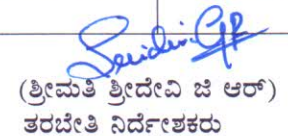 Sridevi GR
(ಶ್ರೀಮತಿ ಶ್ರೀದೇವಿ ಜಿ ಆರ್)
ತರಬೇತಿ ನಿರ್ದೇಶಕರು